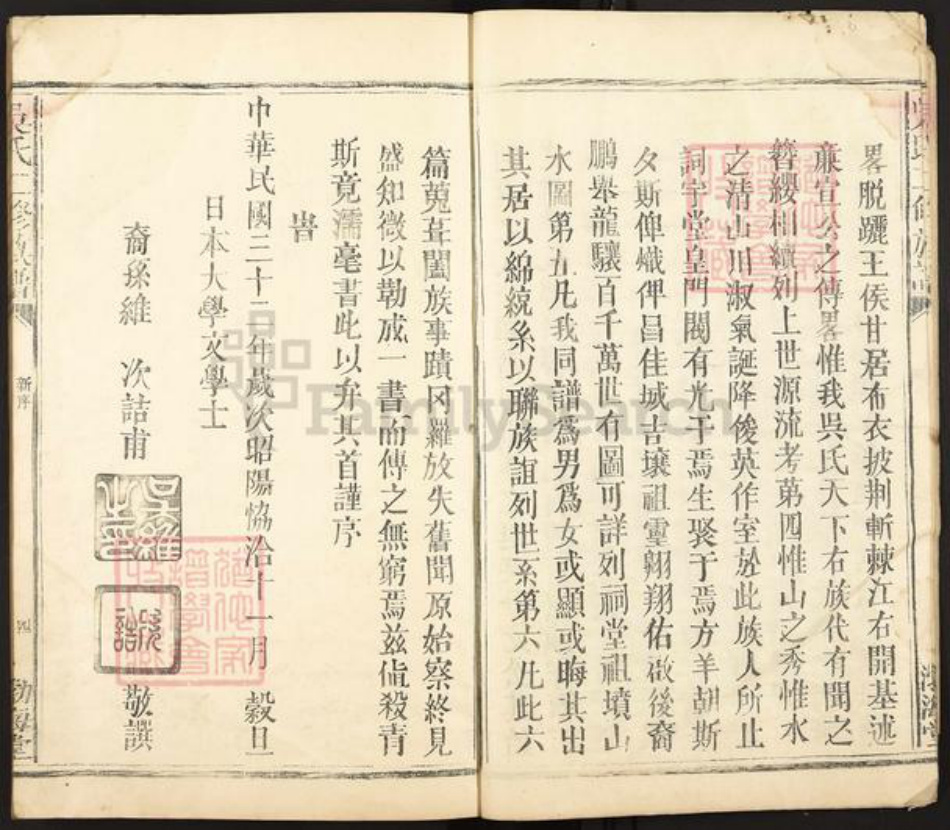 畧脫躧王侯甘居布衣披荆斬棘江右開基述
亷宣公之傳畧惟我吳氏天下右族代有聞之
簪纓相續列上世源流考第四惟山之秀惟水
之清山川淑氣誕降後英作室於此族人所止
詞宇堂皇門閥有光于焉生聚于焉方羊朝斯
夕斯俾熾俾昌佳城吉壤祖靈翱翔佑啟後裔
鵬舉龍驤百千萬世有圖可詳列祠堂祖墳山
水圖第五凡我同譜爲男爲女或顯或晦其出
其居以綿統系以聯族誼列世系第六凡此六
篇蒐葺闔族事蹟罔羅放失舊聞原始察終見
盛知微以勒成一書而傳之無窮焉兹值殺青
斯竟濡毫書此以弁其首謹序
旹
中華民國三十二年歲次昭陽協洽十一月 穀旦
日本大學文學士
裔孫維 次詰甫 敬譔
吳氏二修族譜
新序
四
FamilySearch